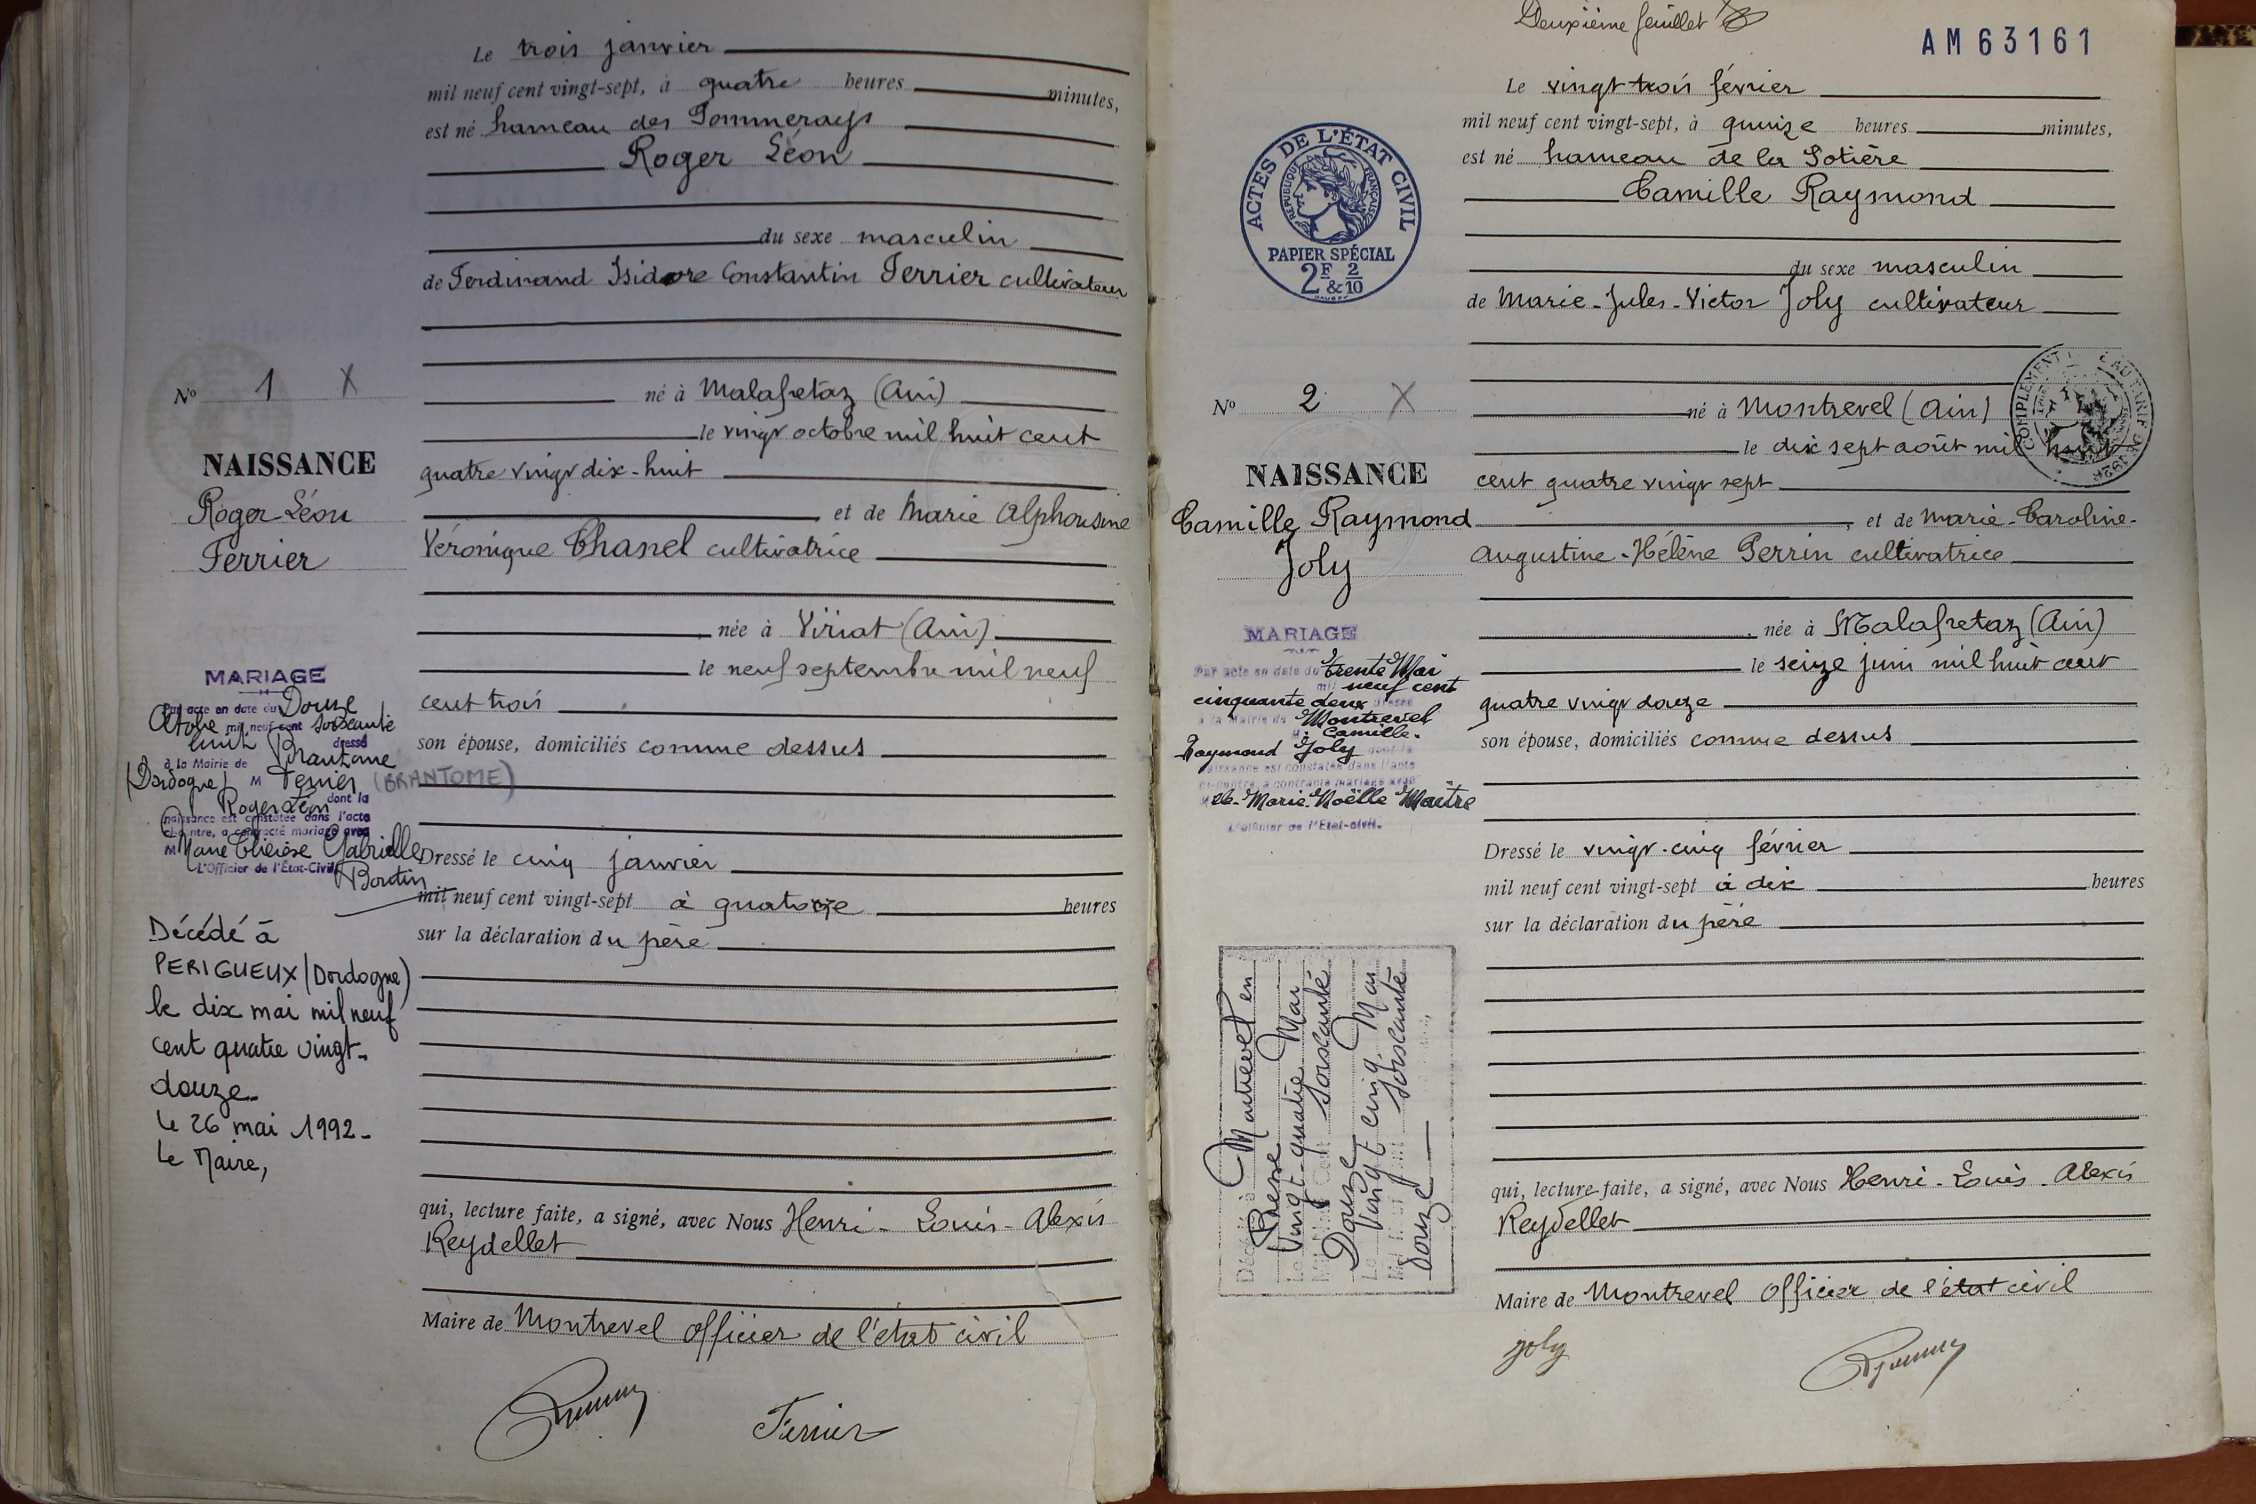 Le trois janvier
mil neuf cent vingt-sept, à quatre heures minutes,
est né hameau des Pommerays
Roger Léon
du sexe masculin
de Ferdinand Isidore Constantin Ferrier cultivateur
né à Malafretaz (Ain)
le vingt octobre mil huit cent
quatre vingt dix-huit
et de Marie Alphonsine
Véronique Chanel cultivatrice
née à Viriat (Ain)
le neuf septembre mil neuf
cent trois
son épouse, domiciliés comme dessus
Dressé le cinq janvier
mil neuf cent vingt-sept à quatorze heures
sur la déclaration du père
qui, lecture faite, a signé, avec Nous Henri-Louis-Alexis
Reydellet
Maire de Montrevel officier de l'état civil
Ferrier
No 1 X
NAISSANCE
Roger Léon
Ferrier
MARIAGE
Par acte en date du Douze
Octobre mil neuf cent soixante
huit dressé
à la Mairie de Brantome
(Dordogne) M Ferrier (BRANTOME)
Roger Léon dont la
naissance est constatée dans l'acte
ci-contre, a contracté mariage avec
M Marie Thérèse Gabrielle
L'Officier de l'État-Civil
Décédé à
PERIGUEUX (Dordogne)
le dix mai mil neuf
cent quatre vingt-
douze
Le 26 mai 1992-
Le Maire,
Deuxième feuillet
AM63161
Le vingt-trois février
mil neuf cent vingt-sept, à quinze heures minutes,
est né hameau de la
Camille Raymond
du sexe masculin
de Marie-Jules-Victor Joly cultivateur
né à Montrevel (Ain)
le dix sept août mil huit
cent quatre vingt sept
et de Marie-Caroline-
Augustine-Hélène Perrin cultivatrice
née à Malafretaz (Ain)
le seize juin mil huit cent
quatre vingt douze
son épouse, domiciliés comme dessus
Dressé le vingt-cinq février
mil neuf cent vingt-sept à dix heures
sur la déclaration du père
qui, lecture faite, a signé, avec Nous Henri-Louis-Alexis
Reydellet
Maire de Montrevel officier de l'état civil
Joly
ACTES DE L'ÉTAT CIVIL
RÉPUBLIQUE FRANÇAISE
PAPIER SPÉCIAL
2F & 2/10
COMPLÉMENT
No 2 X
NAISSANCE
Camille Raymond
Joly
MARIAGE
Par acte en date du trente Mai
mil neuf cent
cinquante deux dressé
à la Mairie de Montrevel
M. Camille-
Raymond Joly dont la
naissance est constatée dans l'acte
ci-contre, a contracté mariage avec
Marie Noëlle Maitre
L'Officier de l'Etat-civil.
Décédé à Montrevel en
Bresse
Le Vingt-quatre Mai
Mil Neuf Cent soixante
Douze
Le Vingt cinq Mai
soixante
douze